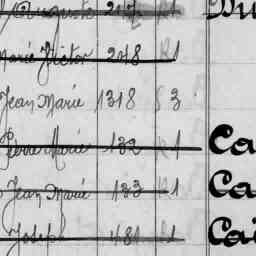 Auguste 217 1 Du
Marie Victor 2018 R1
Jean Marie 1318 S 3
Pierre Marie 132 R 1 Ca
Jean Marie 133 R1 Ca
Joseph 481 R1 Cai